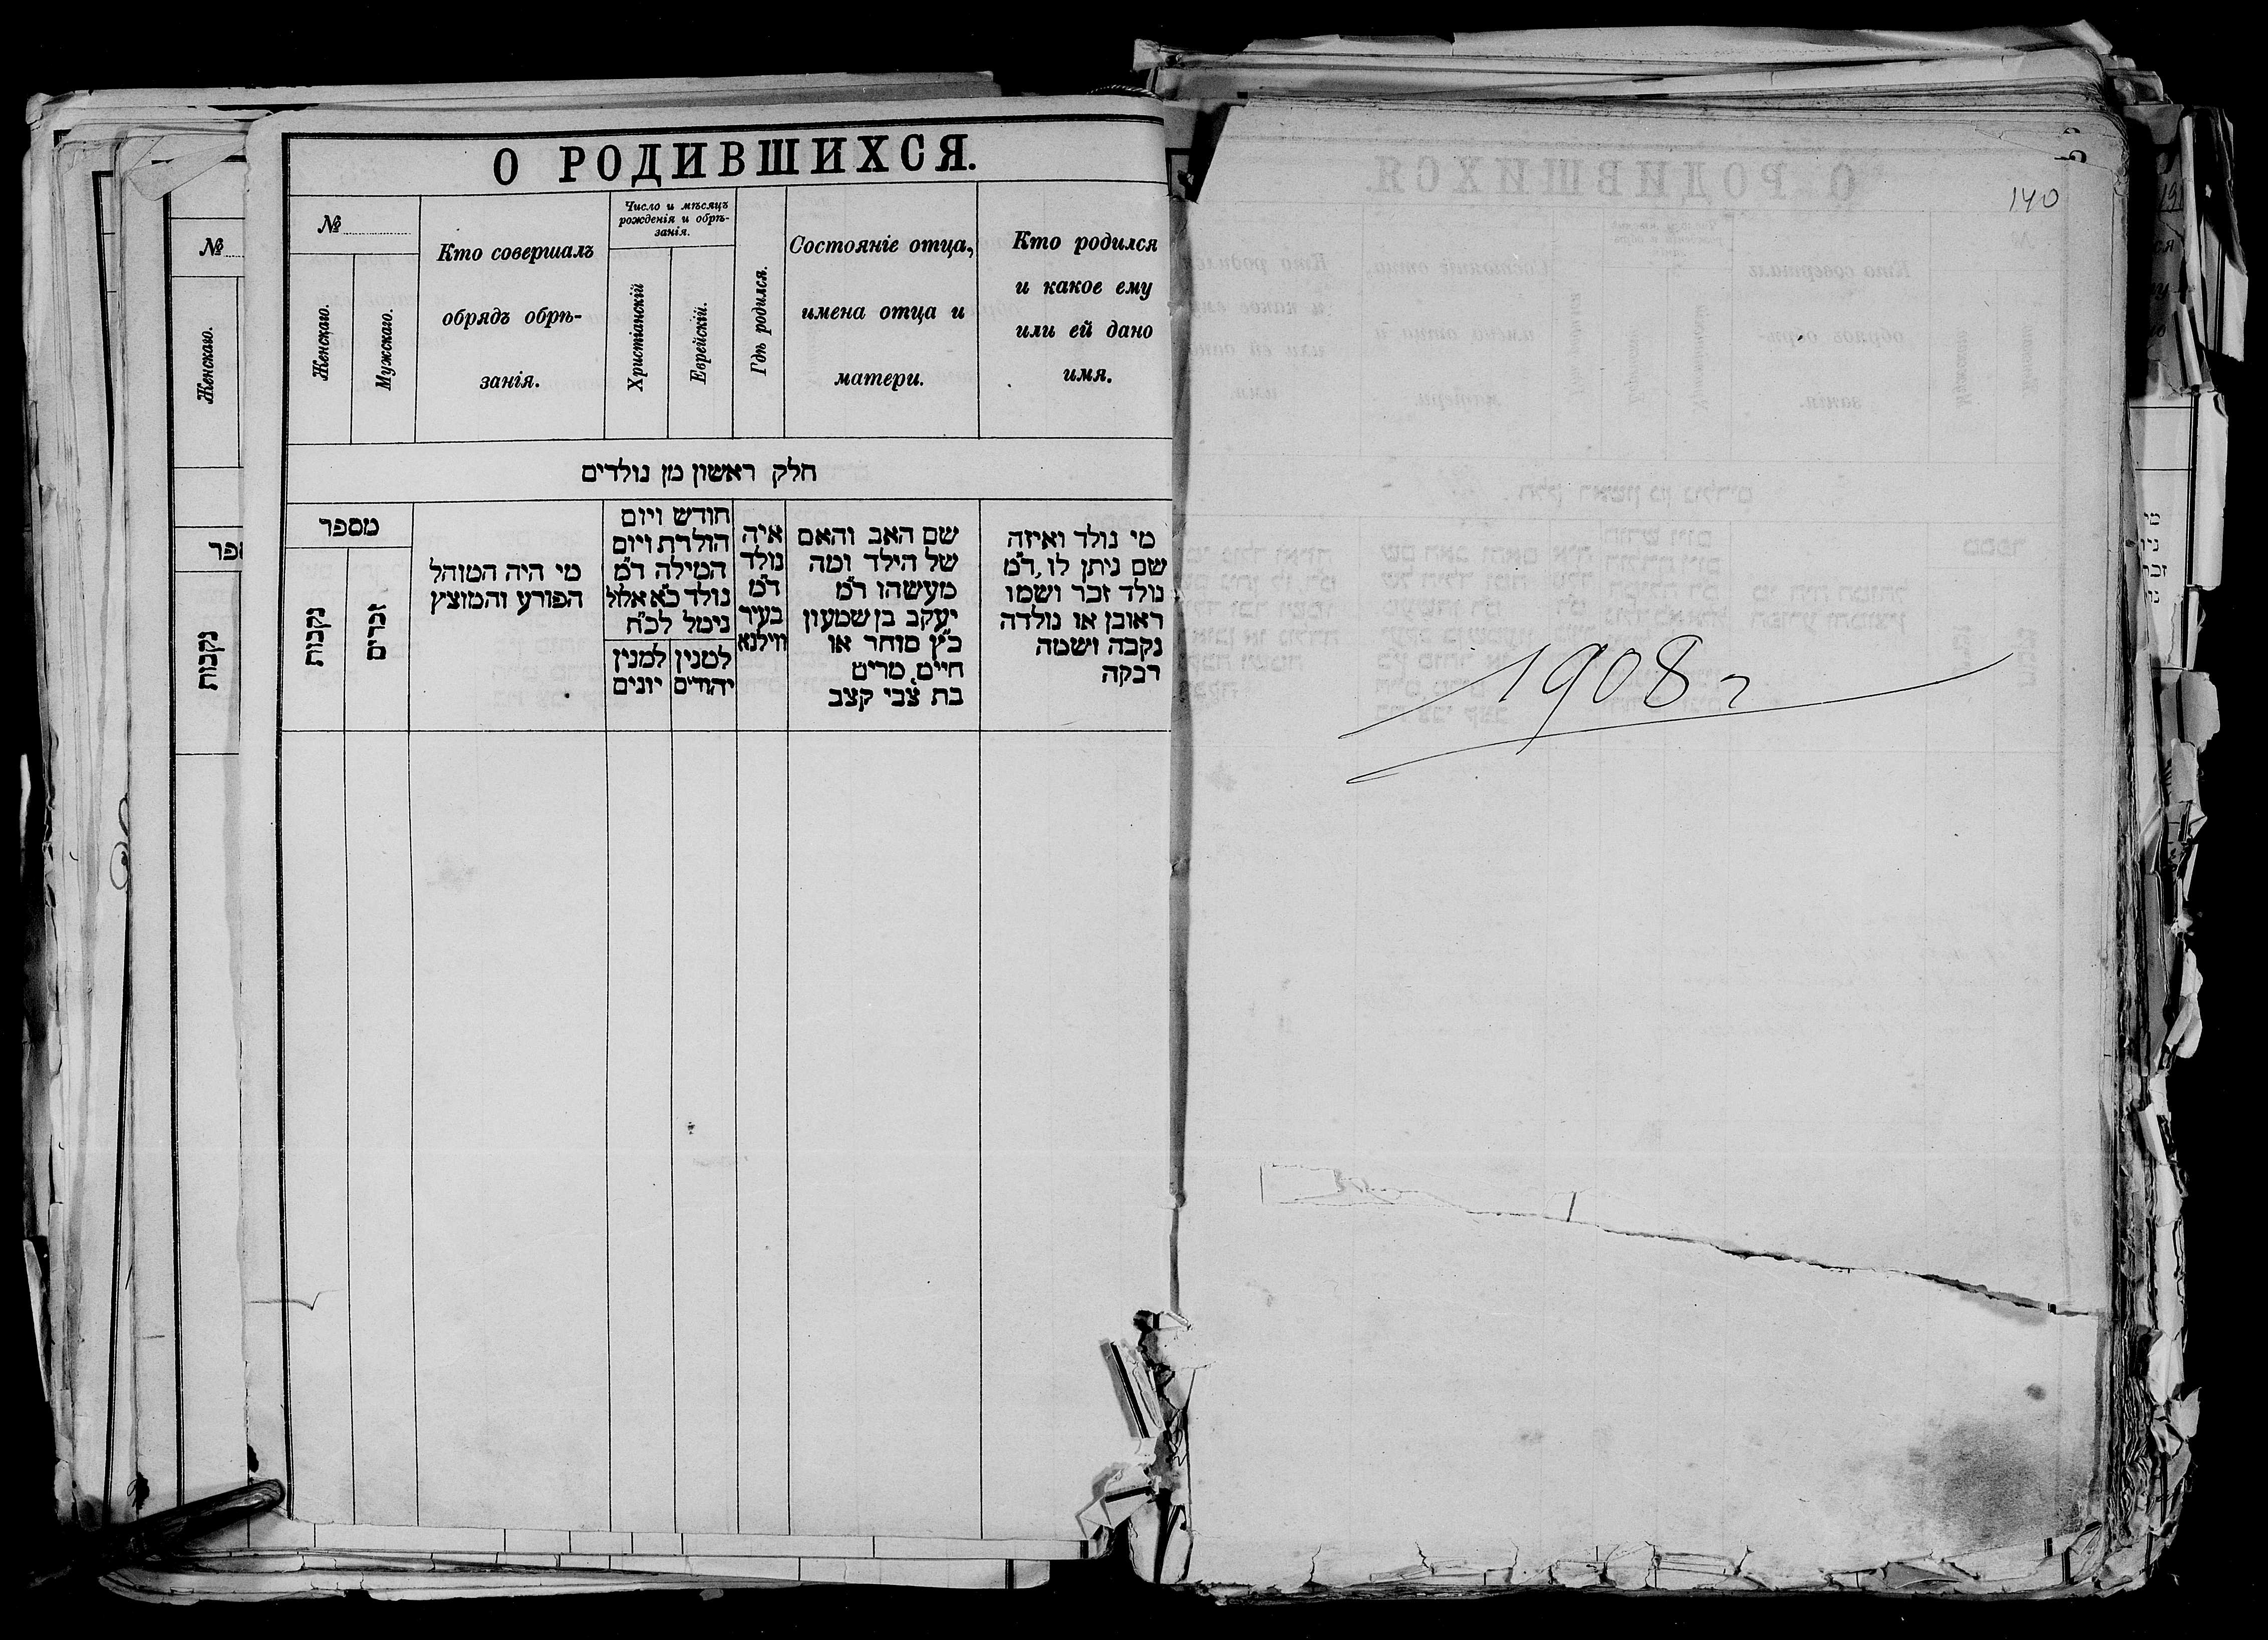 О РОДИВШИХСЯ.
№
Женскаго.
Мужскаго.
Кто совершалъ
обрядъ обрѣ-
занія.
Число и мѣсяцъ
рожденія и обрѣ-
занія.
Христіанскій
Еврейскій.
Гдѣ родился.
Состояніе отца,
имена отца и
матери.
Кто родился
и какое ему
или ей дано
имя.
חלק ראשון מן נולדים
מספר
נקבות
זכרים
מי היה המוהל
הפורע והמוצץ
חודש ויום
הולדת ויום
המילה ד"מ
נולד כ"א אלול
נימל לכ"ח
למנין
יונים
למנין
יהודים
איה
נולד
ד"מ
בעיר
ווילנא
שם האב והאם
של הילד ומה
מעשהו ד"מ
יעקב בן שמעון
כ"ץ סוחר או
חיים, מרים
בת צבי קצב
מי נולד ואיזה
שם ניתן לו, ד"מ
נולד זכר ושמו
ראובן או נולדה
נקבה ושמה
רבקה
№
Женскаго.
נקבות
140
1908 г